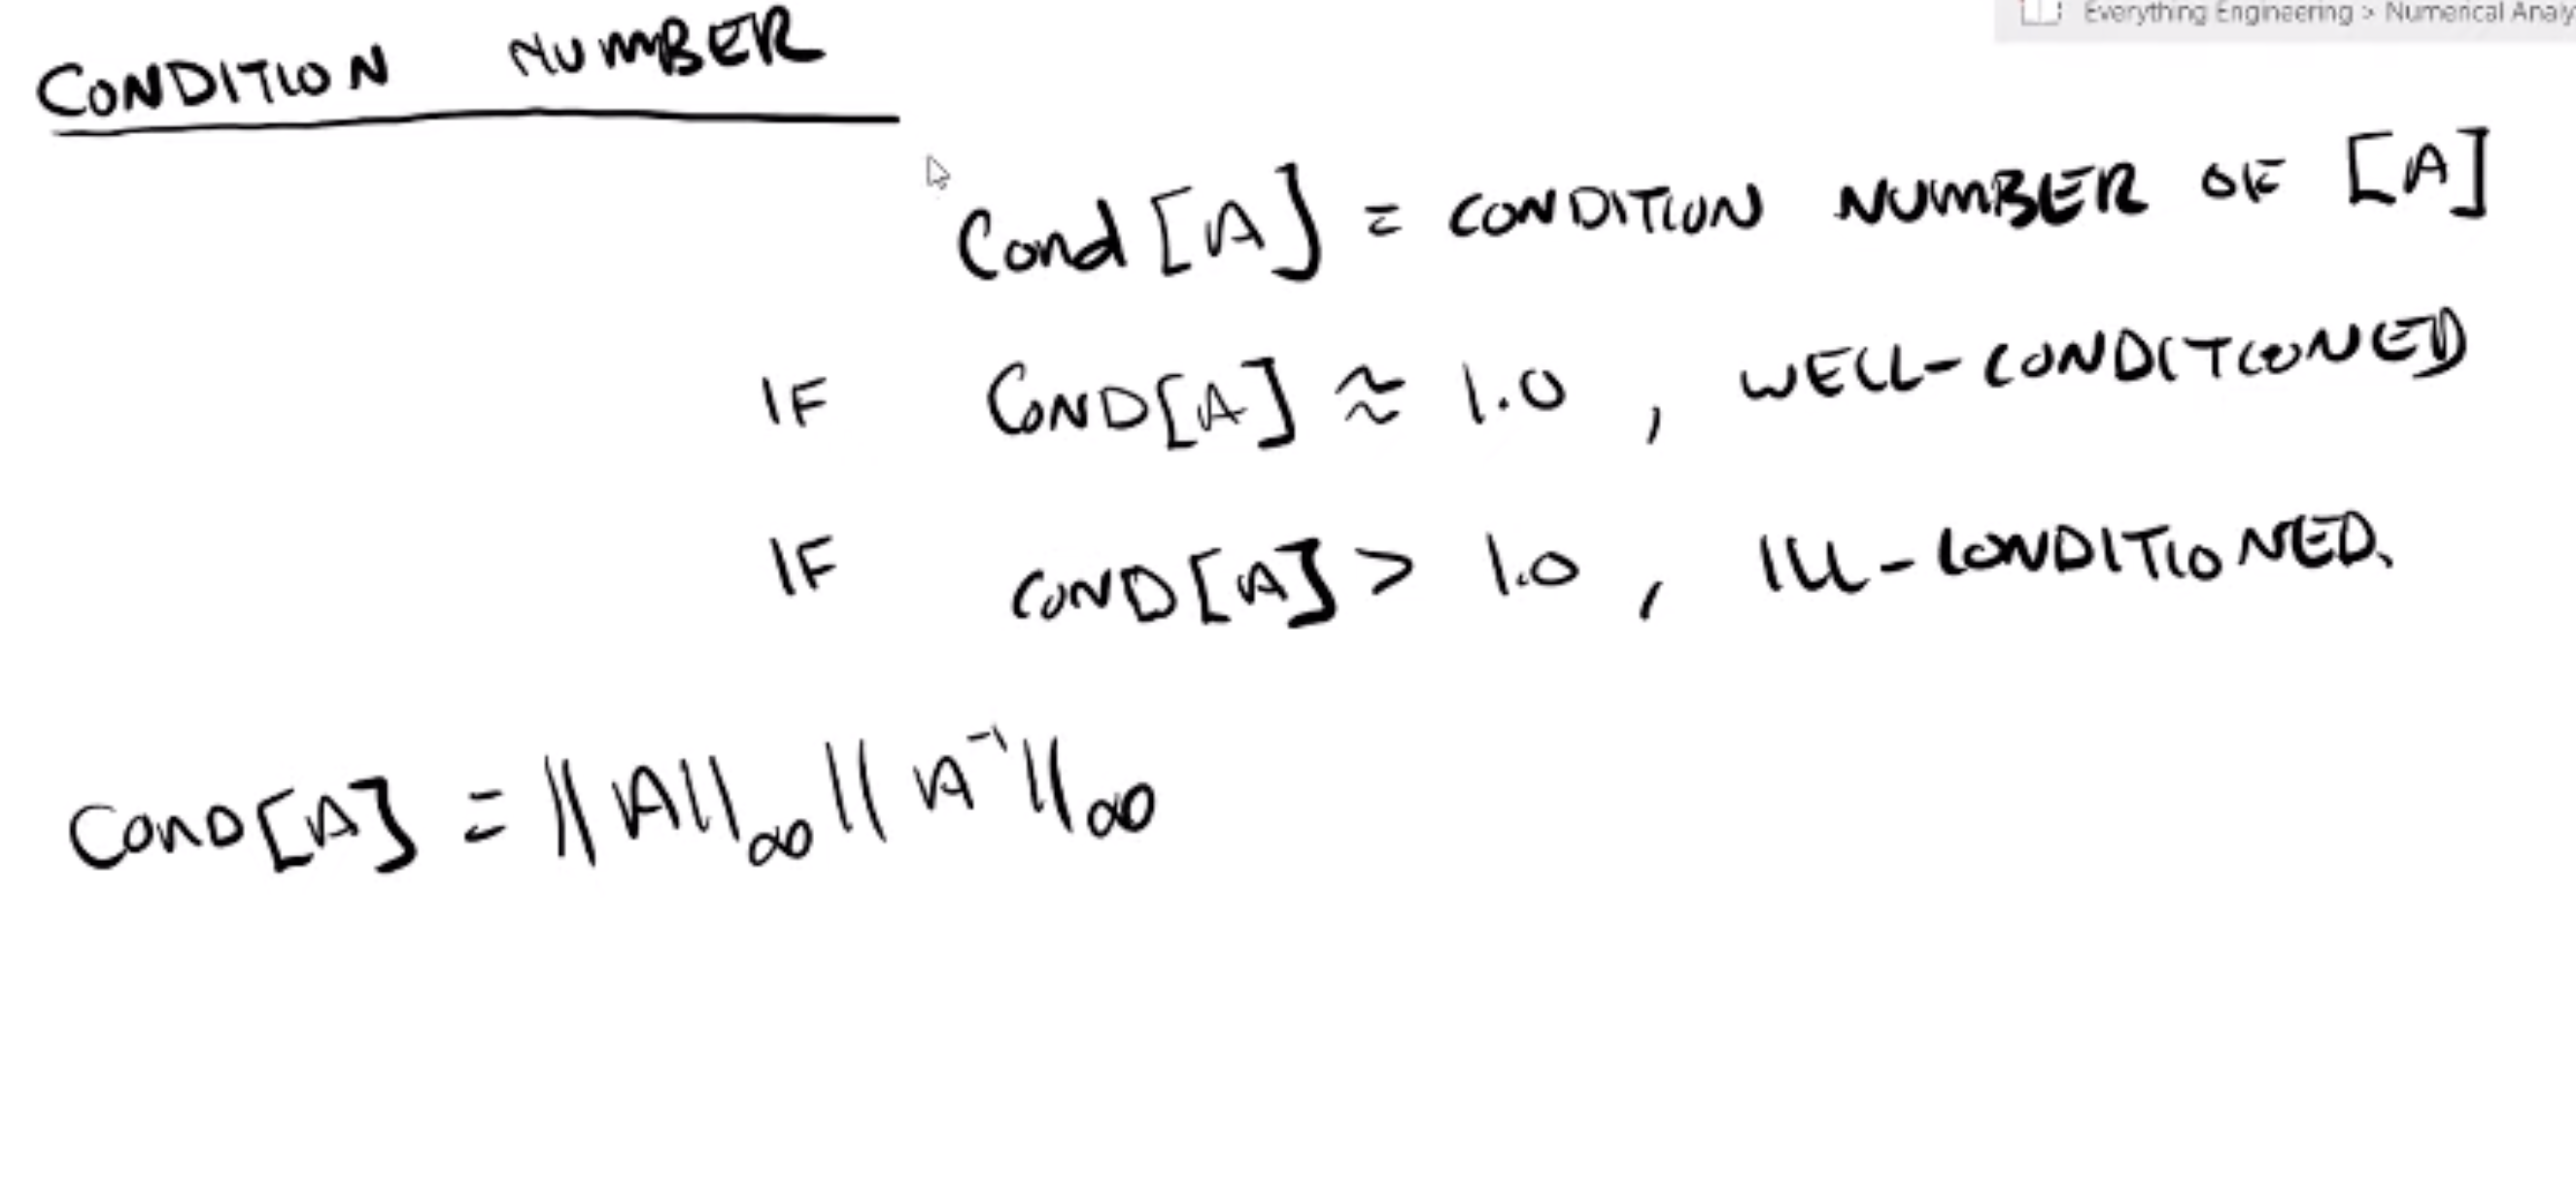 Everything Engineering > Numerical Analy
CONDITION NUMBER
Cond [A] = CONDITION NUMBER OF [A]
IF COND[A] ≈ 1.0 , WELL-CONDITIONED
IF COND[A] > 1.0 , ILL-CONDITIONED.
COND[A] = ||A||∞ ||A⁻¹||∞